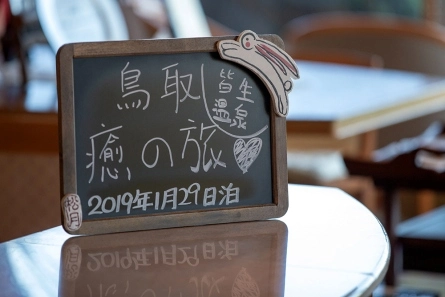 鳥取
皆生
温泉
癒の旅
2019年1月29日泊
松月